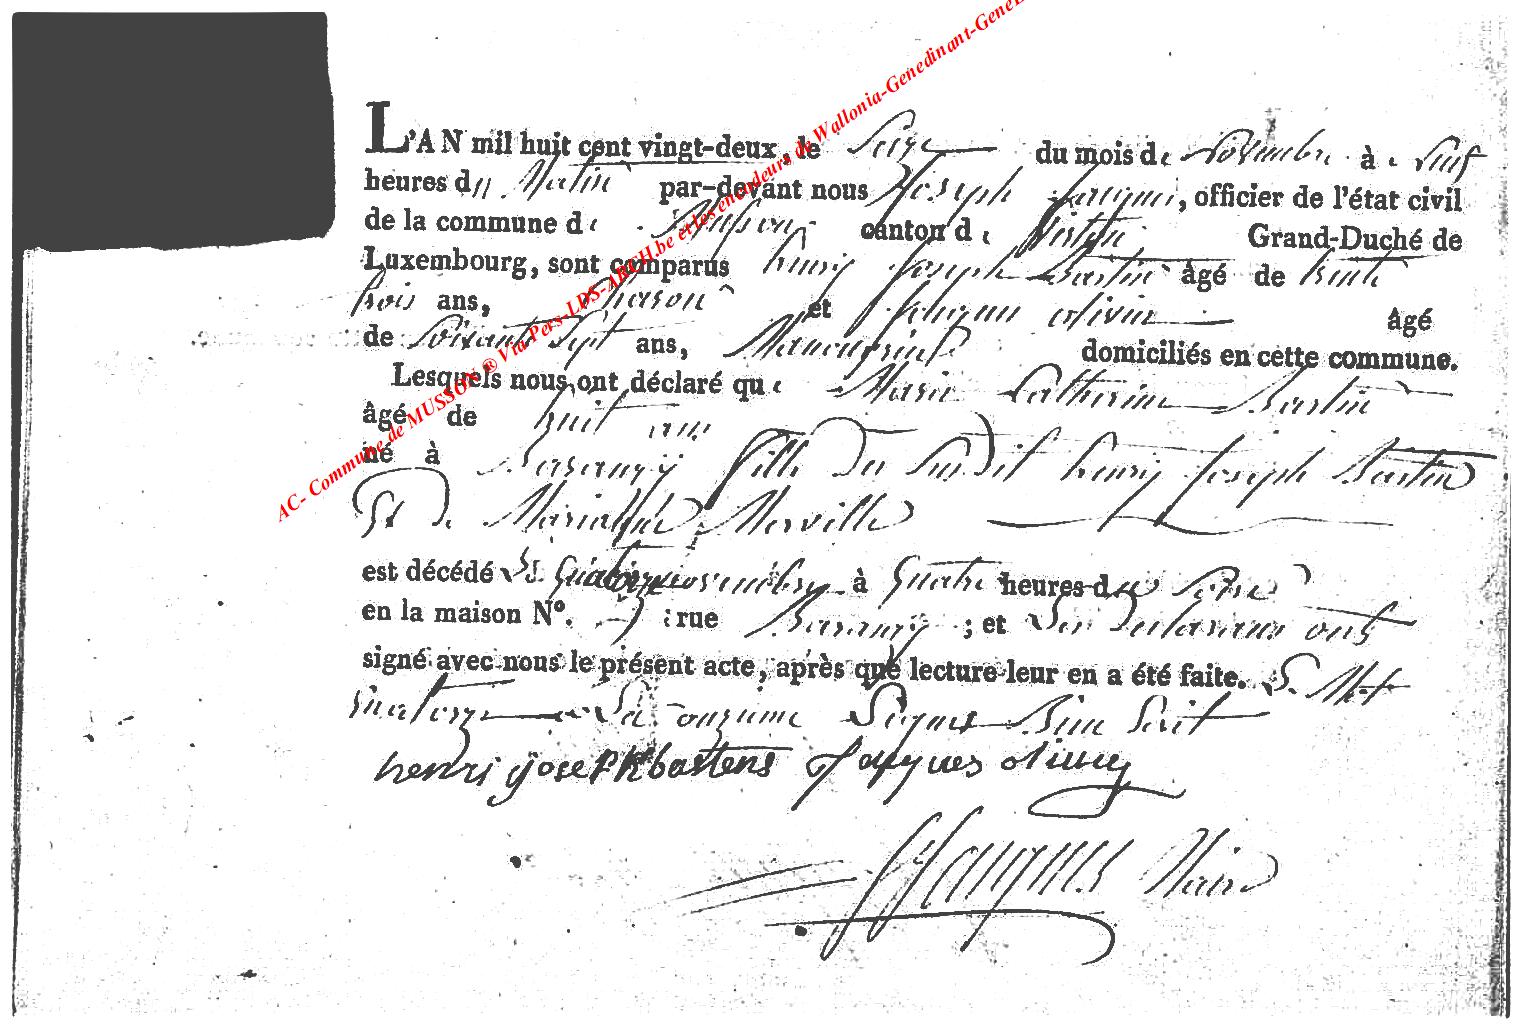 L'AN mil huit cent vingt-deux, le Seize du mois de Novembre à neuf
heures du Matin par-devant nous Joseph Jacques, officier de l'état civil
de la commune de Musson canton de Virton Grand-Duché de
Luxembourg, sont comparus henry Joseph Bastin âgé de trente
trois ans, Mason et Jacques olivier âgé
de Soixante Sept ans, Manouvrier domiciliés en cette commune.
Lesquels nous ont déclaré que Marie Catherine Bastin
âgé de huit ans
né à Baranzy fille du Susdit henry Joseph Bastin
Et de Marianne Merville
est décédé le quatorze novembre à quatre heures du Soire
en la maison N°. : rue Baranzy ; et Les Declarants ont
signé avec nous le présent acte, après que lecture leur en a été faite. Le Mot
quatorze a La onzieme Lignes Bien Ecrit
henri josepk bastens Jacques olivier
JJacques Maire
AC- Commune de MUSSON ® Via Pers-LDS-ARCH.be et les encodeurs de Wallonia-Genedinant-GeneL